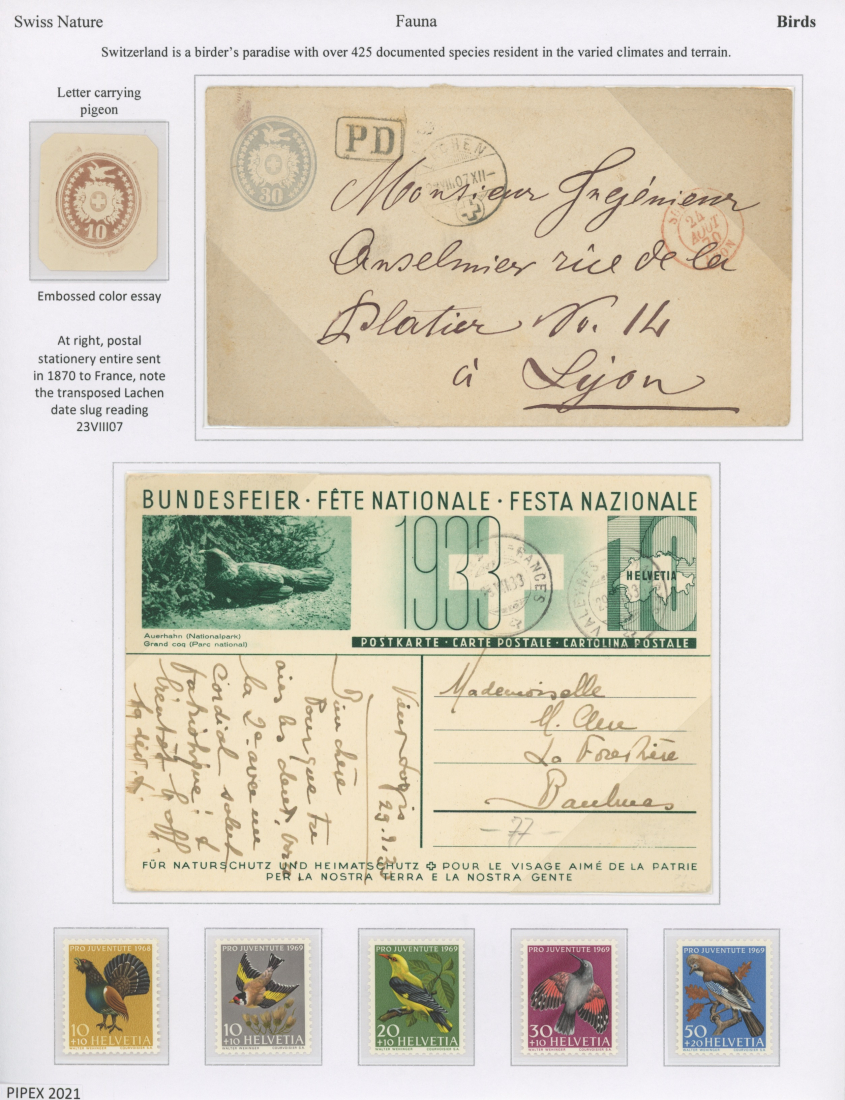 Swiss Nature Fauna Birds
Switzerland is a birder's paradise with over 425 documented species resident in the varied climates and terrain.
Letter carrying
pigeon
10
Embossed color essay
At right, postal
stationery entire sent
in 1870 to France, note
the transposed Lachen
date slug reading
23VIII07
30
PD
LACHEN
07 XII
24
AOUT
70
Monsieur Ingénieur
Anselmier rue de la
Platier No. 14
à Lyon
BUNDESFEIER · FÊTE NATIONALE · FESTA NAZIONALE
1933
10
HELVETIA
VALEYRES
Auerhahn (Nationalpark)
Grand coq (Parc national)
POSTKARTE · CARTE POSTALE · CARTOLINA POSTALE
Bien chère
Pour que tu
aies les deux,
la 2e avec un
cordial salut
patriotique! &
bientôt
Mademoiselle
M.
La Forestière
Baulmes
- 77 -
FÜR NATURSCHUTZ UND HEIMATSCHUTZ POUR LE VISAGE AIMÉ DE LA PATRIE
PER LA NOSTRA TERRA E LA NOSTRA GENTE
PRO JUVENTUTE 1968
10
+10 HELVETIA
WALTER WEHINGER COURVOISIER S.A.
PRO JUVENTUTE 1969
10
+10 HELVETIA
WALTER WEHINGER COURVOISIER S.A.
PRO JUVENTUTE 1969
20
+10 HELVETIA
WALTER WEHINGER COURVOISIER S.A.
PRO JUVENTUTE 1969
30
+10 HELVETIA
WALTER WEHINGER COURVOISIER S.A.
PRO JUVENTUTE 1969
50
+20 HELVETIA
WALTER WEHINGER COURVOISIER S.A.
PIPEX 2021